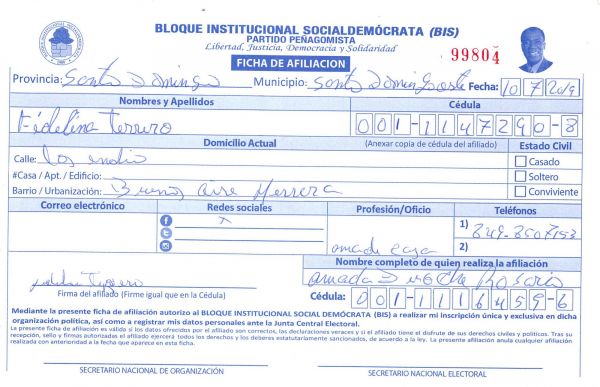 BLOQUE INSTITUCIONAL SOCIALDEMÓCRATA (BIS)
PARTIDO PEÑAGOMISTA
Libertad, Justicia, Democracia y Solidaridad
FICHA DE AFILIACION
99804
Provincia: Santo Domingo Municipio: Santo Domingo Oeste Fecha: 10 7 2019
Nombres y Apellidos Cédula
Fidelina Terrero 001-1147290-8
Domicilio Actual (Anexar copia de cédula del afiliado) Estado Civil
Calle: Los indio Casado
#Casa / Apt. / Edificio: Soltero
Barrio / Urbanización: Buenos Aire Herrera Conviviente
Correo electrónico Redes sociales Profesión/Oficio Teléfonos
x 1)
ama de casa 2)
Nombre completo de quien realiza la afiliación
Rosario
Firma del afiliado (Firme igual que en la Cédula) Cédula: 001-1116459-6
Mediante la presente ficha de afiliación autorizo al BLOQUE INSTITUCIONAL SOCIAL DEMÓCRATA (BIS) a realizar mi inscripción única y exclusiva en dicha
organización política, así como a registrar mis datos personales ante la Junta Central Electoral.
La presente ficha de afiliación es válida si los datos ofrecidos por el afiliado son correctos, las declaraciones veraces y si el afiliado tiene el disfrute de sus derechos civiles y políticos. Tras su
recepción, sello y firmas autorizadas el afiliado ejercerá todos los derechos y los deberes estatutariamente sancionados, de acuerdo a la ley. La presente afiliación anula cualquier afiliación
realizada con anterioridad a la fecha que aparece en esta ficha.
SECRETARIO NACIONAL DE ORGANIZACIÓN SECRETARIO NACIONAL ELECTORAL